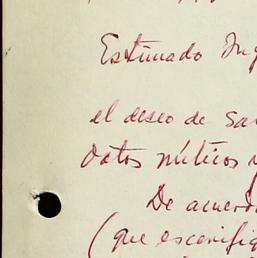 Estimado Ing
el deseo de sa
datos
De acuerd
(que escarifi